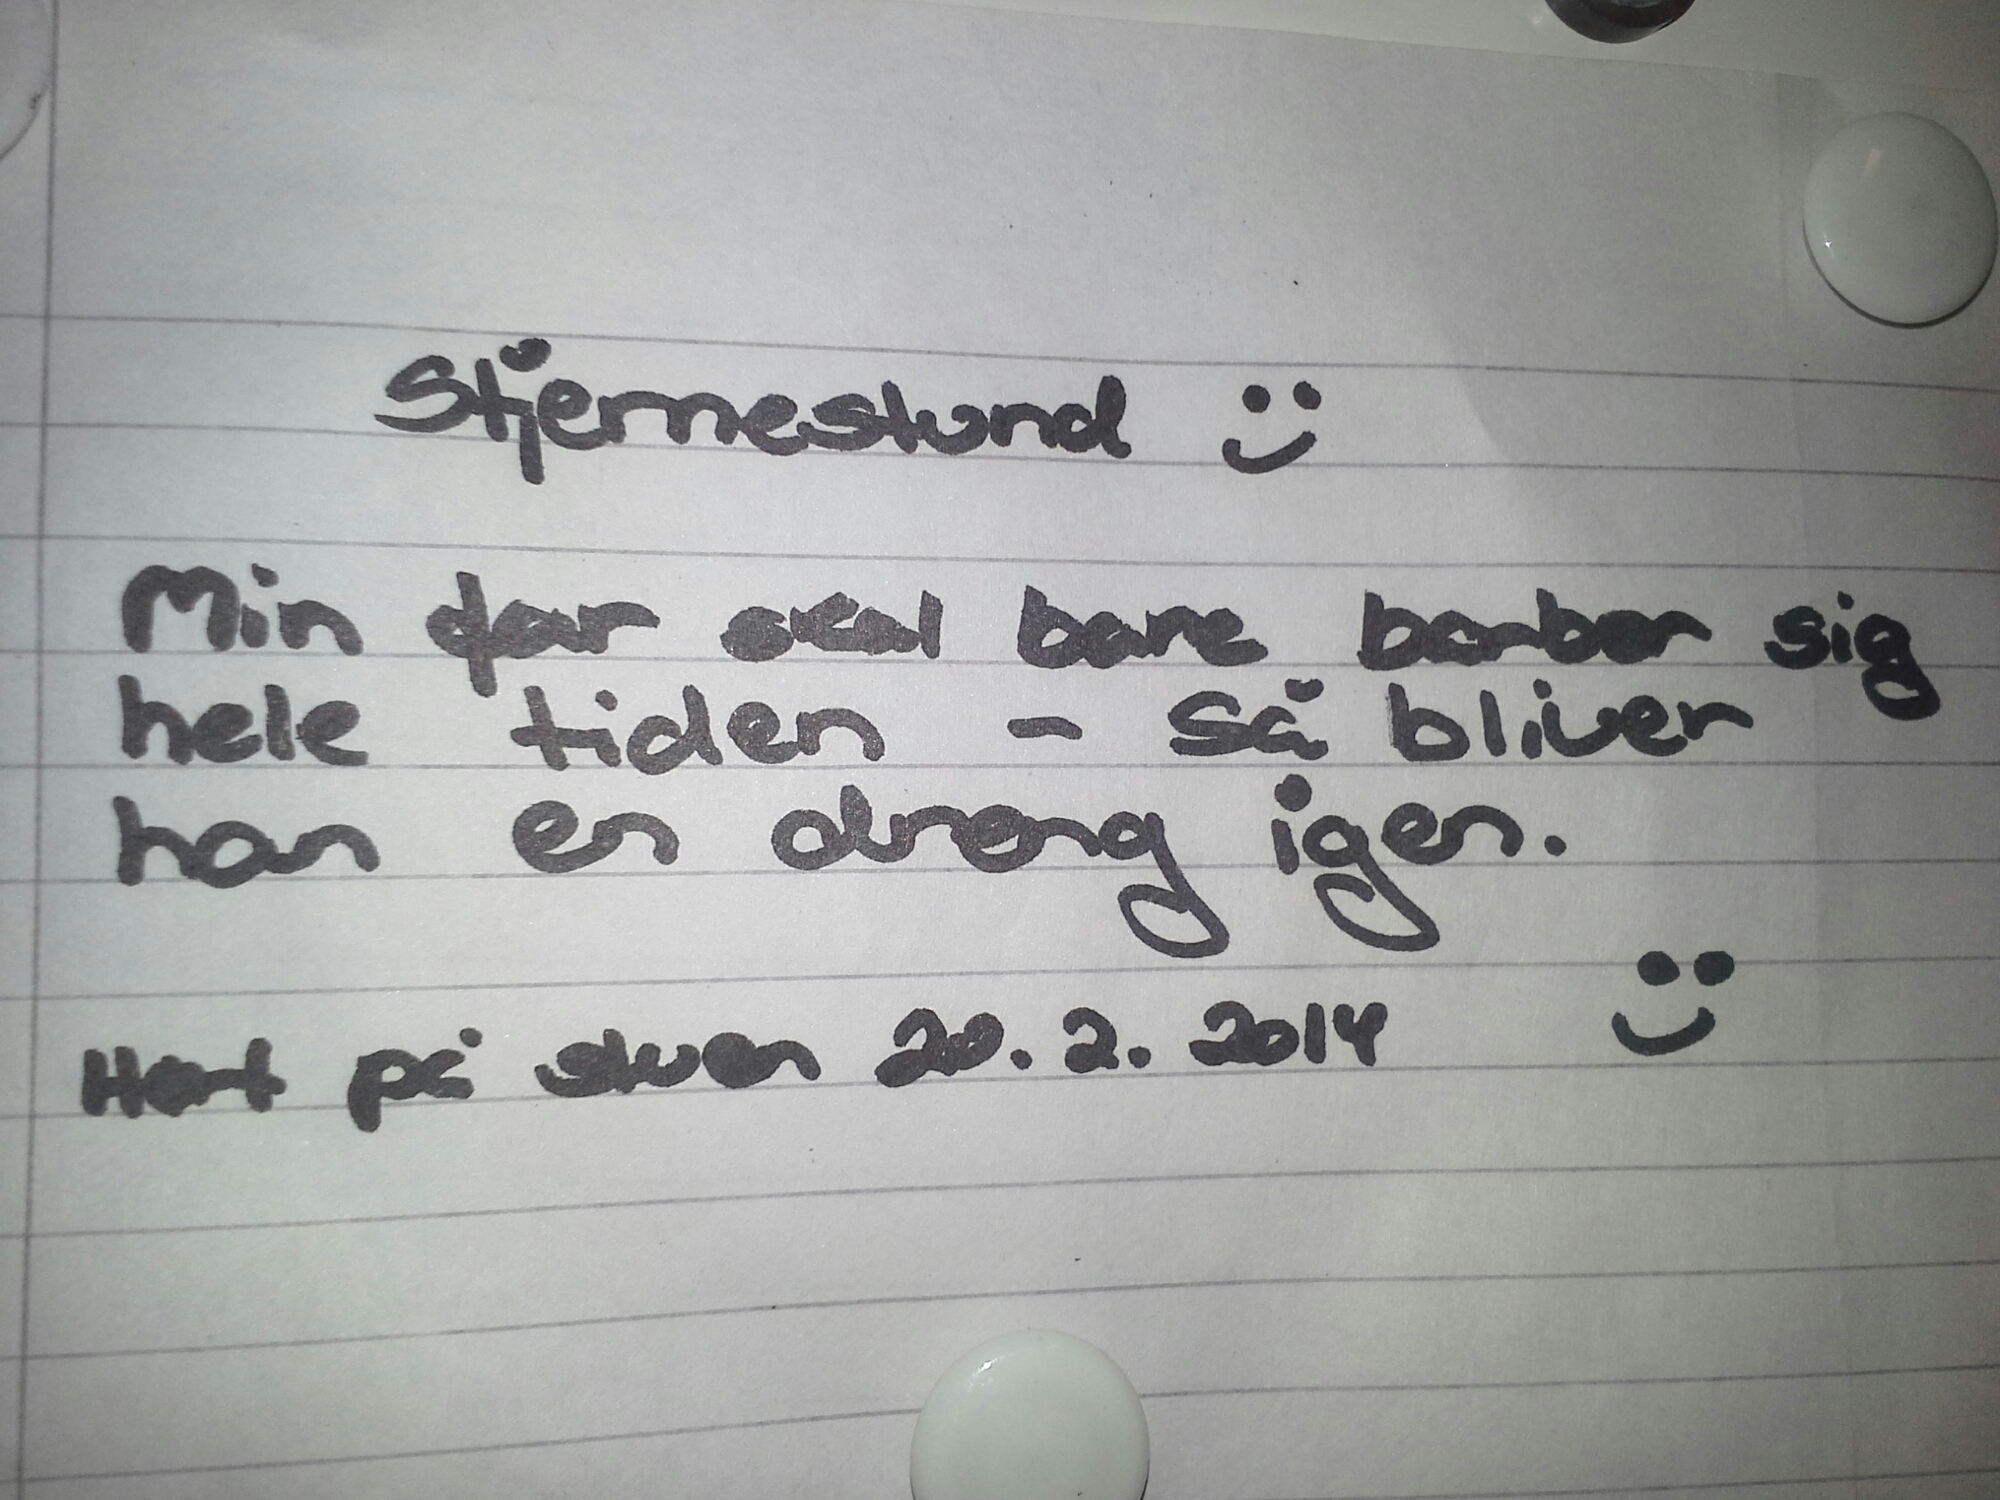 Stjerneslund :)
Min far skal bare barber sig
hele tiden - så bliver
han en dreng igen.
:)
Hørt på stuen 20.2.2014